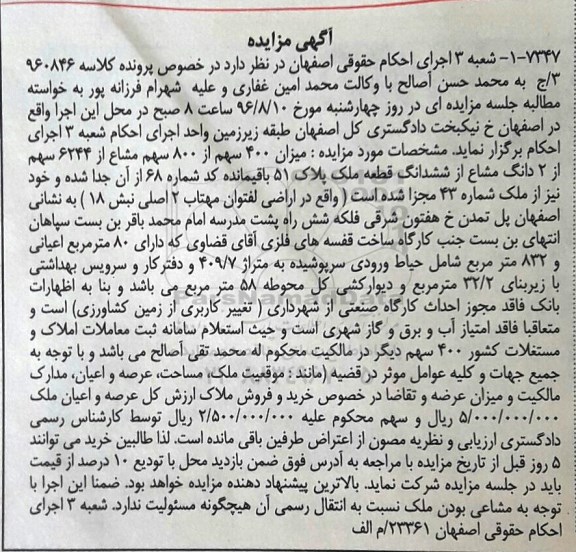 آگهی مزایده
۱-۷۳۴۷- شعبه ۳ اجرای احکام حقوقی اصفهان در نظر دارد در خصوص پرونده کلاسه ۹۶۰۸۴۶
۳/ج به محمد حسن أصالح با وکالت محمد امین غفاری و علیه شهرام فرزانه پور به خواسته
مطالبه جلسه مزایده ای در روز چهارشنبه مورخ ۹۶/۸/۱۰ ساعت ۸ صبح در محل این اجرا واقع
در اصفهان خ نیکبخت دادگستری کل اصفهان طبقه زیرزمین واحد اجرای احکام شعبه ۳ اجرای
احکام برگزار نماید. مشخصات مورد مزایده : میزان ۴۰۰ سهم از ۸۰۰ سهم مشاع از ۶۲۴۴ سهم
از ۲ دانگ مشاع از ششدانگ قطعه ملک پلاک ۵۱ باقیمانده کد شماره ۶۸ از آن جدا شده و خود
نیز از ملک شماره ۴۳ مجزا شده است ( واقع در اراضی لفتوان مهتاب ۲ اصلی نبش ۱۸ ) به نشانی
اصفهان پل تمدن خ هفتون شرقی فلکه شش راه پشت مدرسه امام محمد باقر بن بست سپاهان
انتهای بن بست جنب کارگاه ساخت قفسه های فلزی آقای قضاوی که دارای ۸۰ مترمربع اعیانی
و ۸۳۲ متر مربع شامل حیاط ورودی سرپوشیده به متراژ ۴۰۹/۷ و دفترکار و سرویس بهداشتی
با زیربنای ۳۲/۲ مترمربع و دیوارکشی کل محوطه ۵۸ متر مربع می باشد و بنا به اظهارات
بانک فاقد مجوز احداث کارگاه صنعتی از شهرداری ( تغییر کاربری از زمین کشاورزی) است و
متعاقبا فاقد امتیاز آب و برق و گاز شهری است و حیث استعلام سامانه ثبت معاملات املاک و
مستغلات کشور ۴۰۰ سهم دیگر در مالکیت محکوم له محمد تقی أصالح می باشد و با توجه به
جمیع جهات و کلیه عوامل موثر در قضیه (مانند : موقعیت ملک، مساحت، عرصه و اعیان، مدارک
مالکیت و میزان عرضه و تقاضا در خصوص خرید و فروش ملاک ارزش کل عرصه و اعیان ملک
۵/۰۰۰/۰۰۰/۰۰۰ ریال و سهم محکوم علیه ۲/۵۰۰/۰۰۰/۰۰۰ ریال توسط کارشناس رسمی
دادگستری ارزیابی و نظریه مصون از اعتراض طرفین باقی مانده است. لذا طالبین خرید می توانند
۵ روز قبل از تاریخ مزایده با مراجعه به آدرس فوق ضمن بازدید محل با تودیع ۱۰ درصد از قیمت
باید در جلسه مزایده شرکت نماید. بالاترین پیشنهاد دهنده مزایده خواهد بود. ضمنا این اجرا با
توجه به مشاعی بودن ملک نسبت به انتقال رسمی آن هیچگونه مسئولیت ندارد. شعبه ۳ اجرای
احکام حقوقی اصفهان ۲۳۳۶۱/م الف